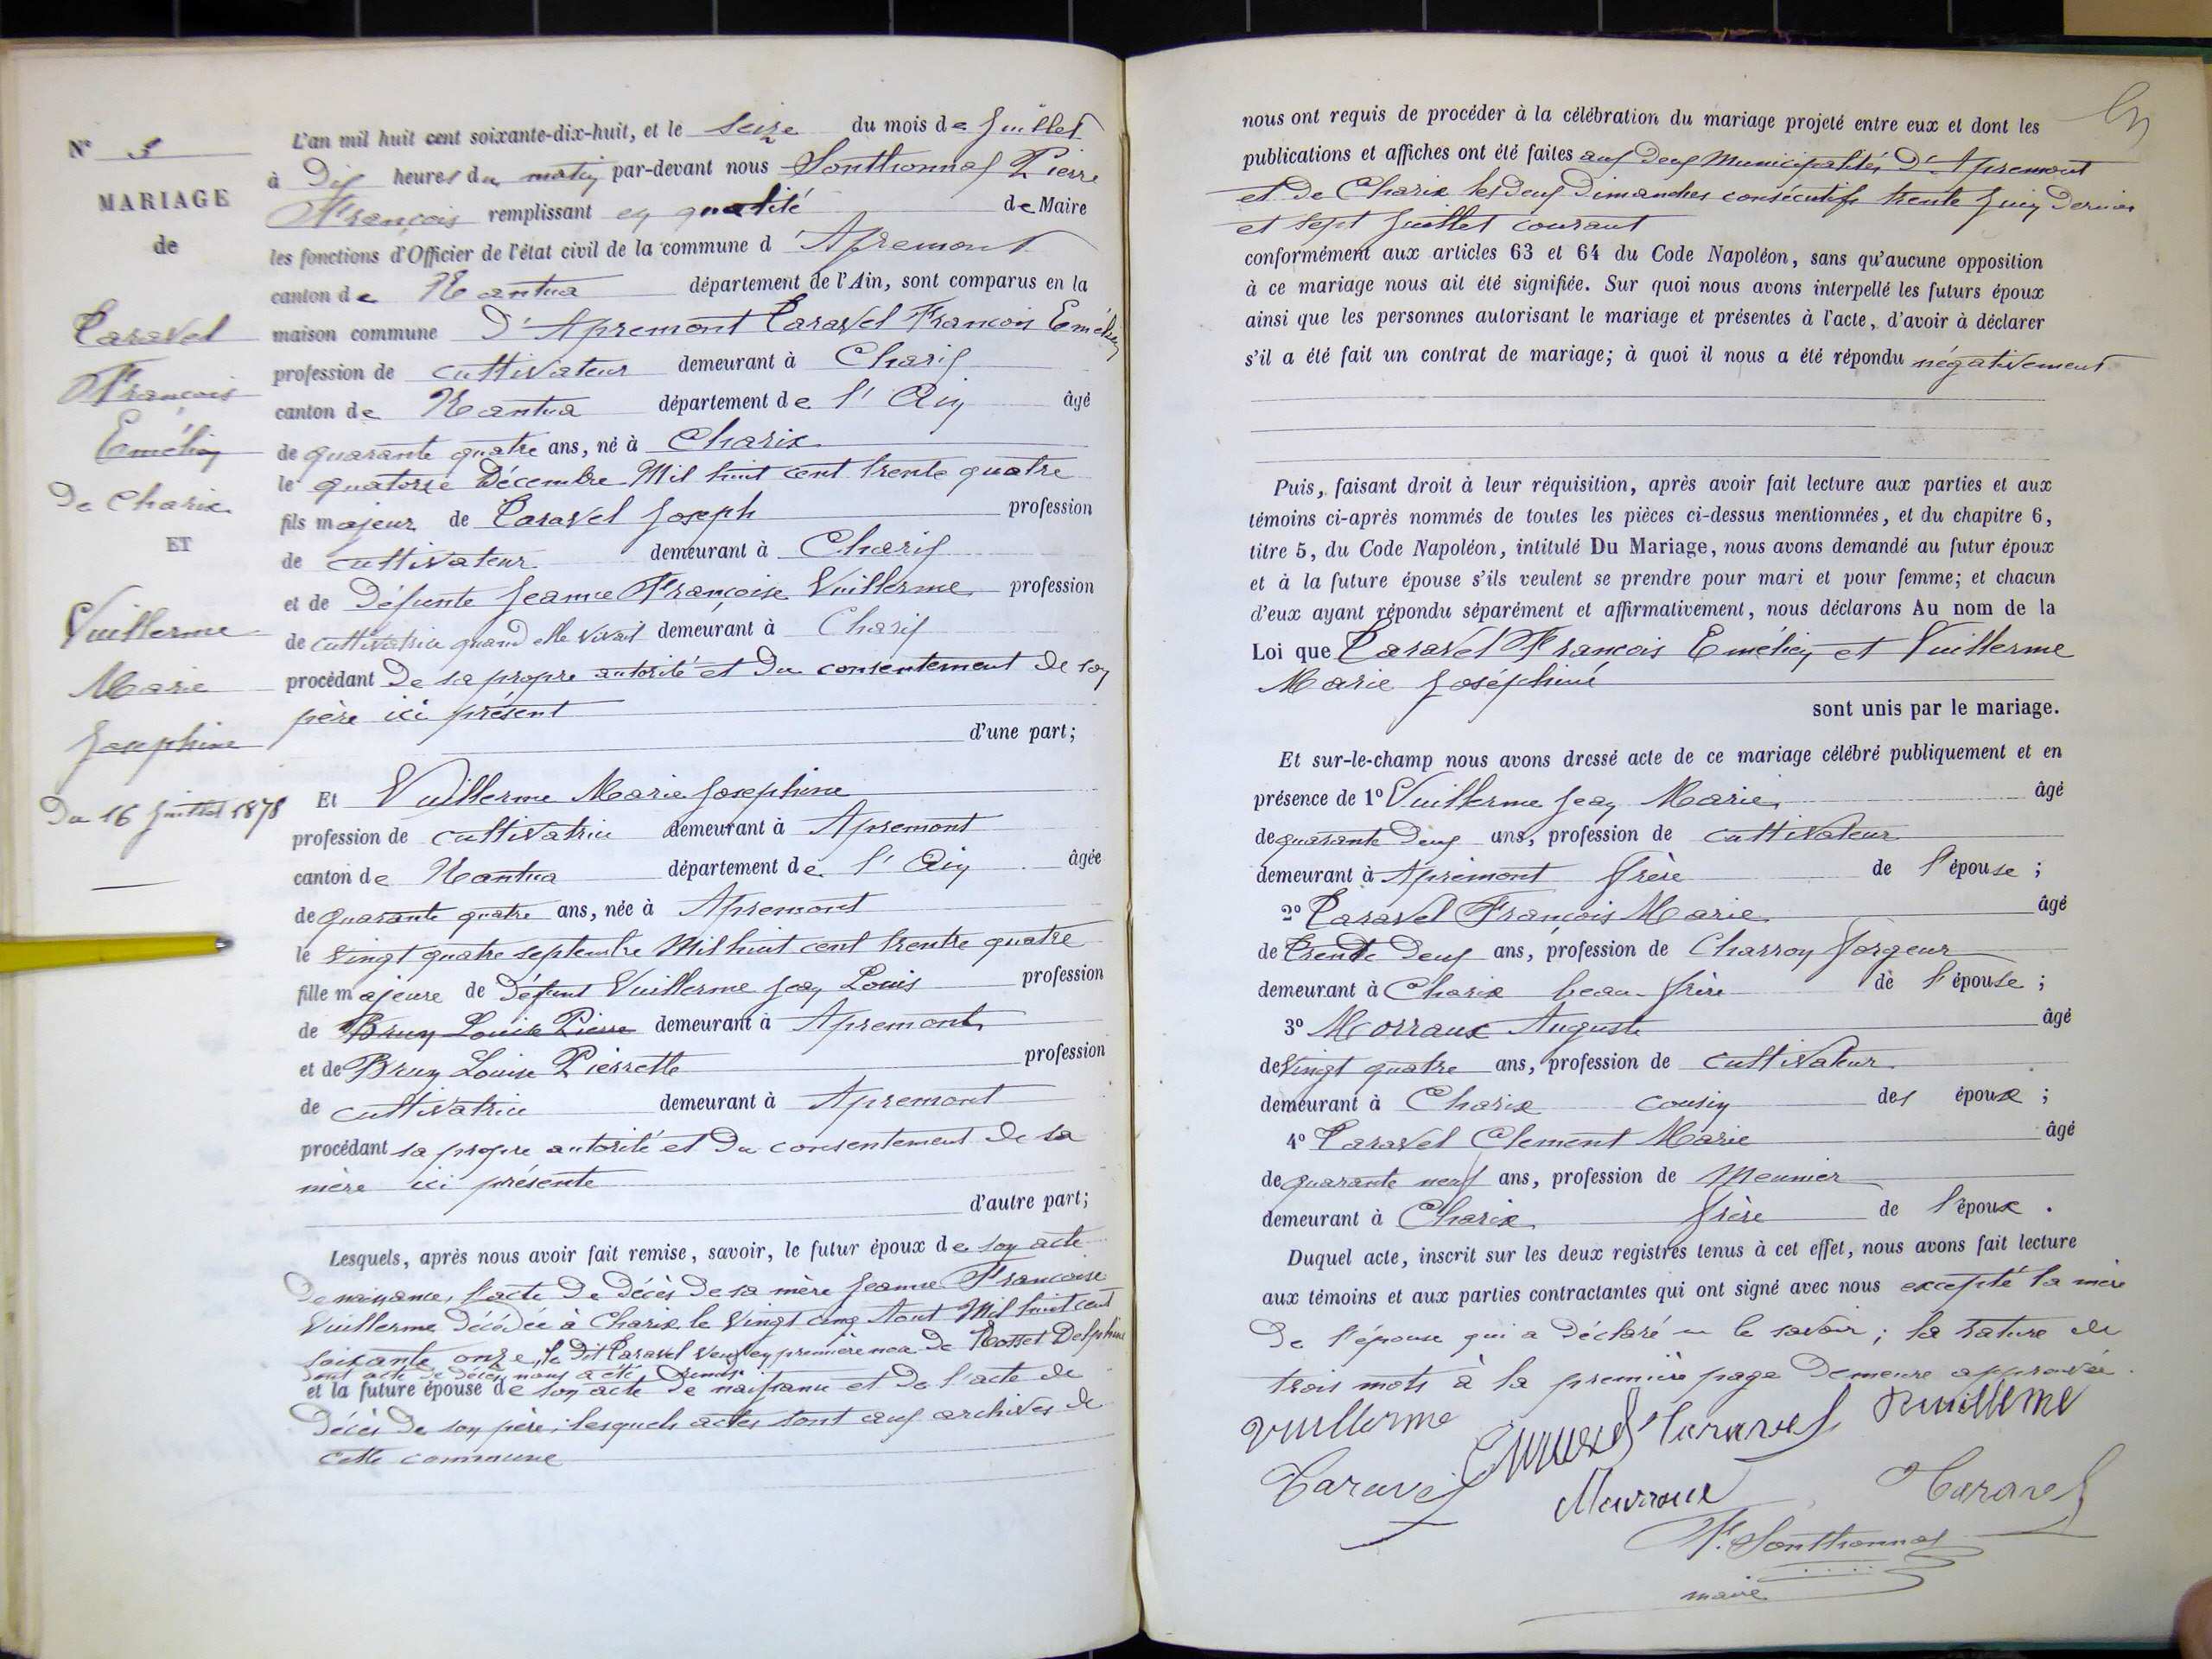 N° 3
MARIAGE
de
Caravel
François
Emélien
De Charix
ET
Vuillerme
Marie
Josephine
Du 16 Juillet 1878
L'an mil huit cent soixante-dix-huit, et le seize du mois de Juillet
à Dix heures du matin par-devant nous Sonthonnax Pierre
François remplissant en qualité de Maire
les fonctions d'Officier de l'état civil de la commune d'Apremont
canton de Nantua département de l'Ain, sont comparus en la
maison commune D'Apremont Caravel François Emélien
profession de cultivateur demeurant à Charix
canton de Nantua département de l'Ain âgé
de quarante quatre ans, né à Charix
le quatorze Décembre Mil huit cent trente quatre
fils majeur de Caravel Joseph profession
de cultivateur demeurant à Charix
et de Défunte Jeanne Françoise Vuillerme profession
de cultivatrice quand elle vivait demeurant à Charix
procédant De sa propre autorité et du consentement de son
père ici présent
d'une part;
Et Vuillerme Marie Josephine
profession de cultivatrice demeurant à Apremont
canton de Nantua département de l'Ain âgée
de quarante quatre ans, née à Apremont
le vingt quatre septembre Mil huit cent trente quatre
fille majeure de Défunt Vuillerme Jean Louis profession
de Brun Louise Pierre demeurant à Apremont
et de Brun Louise Pierrette profession
de cultivatrice demeurant à Apremont
procédant sa propre autorité et du consentement de sa
mère ici présente
d'autre part;
Lesquels, après nous avoir fait remise, savoir, le futur époux de son acte
De naissance, l'acte De Décès De sa mère Jeanne Françoise
Vuillerme Décédée à Charix le Vingt cinq Aout Mil huit cent
soixante onze, le dit Caravel veuf en première noce De Rosset Delphine
dont acte de décès nous a été remis
et la future épouse de son acte de naissance et de l'acte de
Décès De son père; lesquels actes sont aux archives de
cette commune
nous ont requis de procéder à la célébration du mariage projeté entre eux et dont les
publications et affiches ont été faites aux deux Municipalités D'Apremont
et de Charix les deux Dimanches consécutifs trente Juin Dernier
et sept Juillet courant
conformément aux articles 63 et 64 du Code Napoléon, sans qu'aucune opposition
à ce mariage nous ait été signifiée. Sur quoi nous avons interpellé les futurs époux
ainsi que les personnes autorisant le mariage et présentes à l'acte, d'avoir à déclarer
s'il a été fait un contrat de mariage; à quoi il nous a été répondu négativement
Puis, faisant droit à leur réquisition, après avoir fait lecture aux parties et aux
témoins ci-après nommés de toutes les pièces ci-dessus mentionnées, et du chapitre 6,
titre 5, du Code Napoléon, intitulé Du Mariage, nous avons demandé au futur époux
et à la future épouse s'ils veulent se prendre pour mari et pour femme; et chacun
d'eux ayant répondu séparément et affirmativement, nous déclarons Au nom de la
Loi que Caravel François Emélien et Vuillerme
Marie Joséphine
sont unis par le mariage.
Et sur-le-champ nous avons dressé acte de ce mariage célébré publiquement et en
présence de 1° Vuillerme Jean Marie âgé
de quarante deux ans, profession de cultivateur
demeurant à Apremont frère de l'épouse;
2° Caravel François Marie âgé
de trente deux ans, profession de Charron forgeur
demeurant à Charix beau-frère de l'épouse;
3° Morraux Auguste âgé
de vingt quatre ans, profession de cultivateur
demeurant à Charix cousin des époux;
4° Caravel Clement Marie âgé
de quarante neuf ans, profession de Meunier
demeurant à Charix frère de l'époux.
Duquel acte, inscrit sur les deux registres tenus à cet effet, nous avons fait lecture
aux témoins et aux parties contractantes qui ont signé avec nous excepté la mère
De l'épouse qui a déclaré ne le savoir; la rature de
trois mots à la première page Demeure approuvée.
Vuillerme Caravel Vuillerme
Caravel Morraux Caravel
P. Sonthonnax
maire